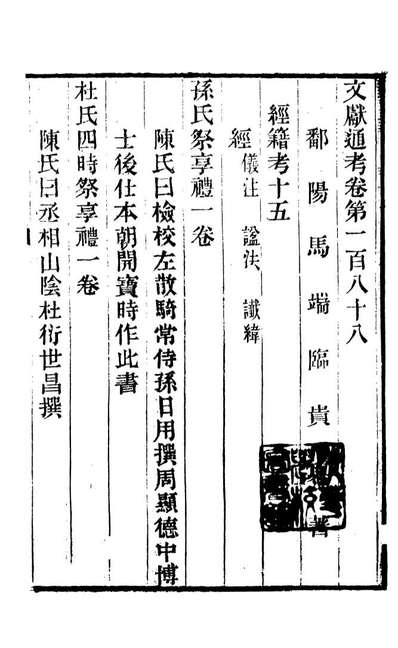 文獻通考卷第一百八十八
鄱陽馬端臨貴
著
經籍考十五
經 儀注 諡法 讖緯
孫氏祭享禮一卷
陳氏曰檢校左散騎常侍孫日用撰周顯德中博
士後仕本朝開寶時作此書
杜氏四時祭享禮一卷
陳氏曰丞相山陰杜衍世昌撰